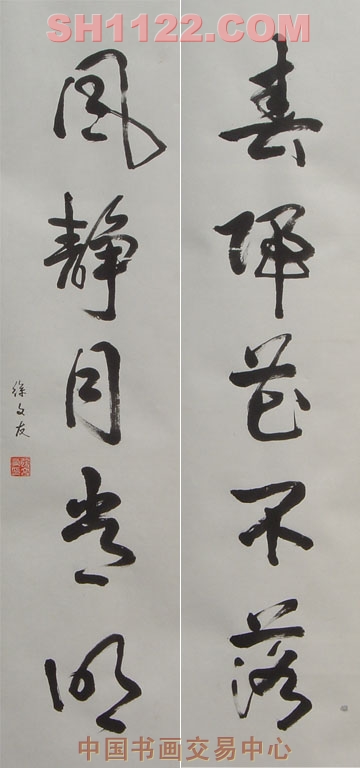 SH1122.COM
春歸花不落
風静月常明
徐文友
中国书画交易中心